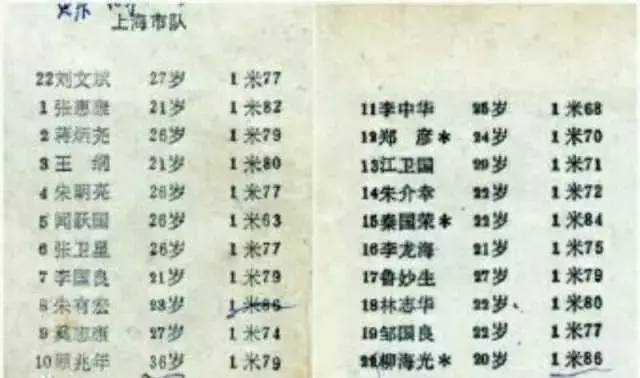 上海市队
22刘文斌 27岁 1米77
1 张惠康 21岁 1米82
2 蒋炳尧 26岁 1米79
3 王 纲 21岁 1米80
4 朱明亮 26岁 1米77
5 闻跃国 26岁 1米63
6 张卫星 26岁 1米77
7 李国良 21岁 1米79
8 朱有宏 23岁 1米86
9 奚志康 27岁 1米74
10 顾兆年 36岁 1米79
11李中华 25岁 1米68
12郑 彦* 24岁 1米70
13江卫国 29岁 1米71
14朱介幸 22岁 1米72
15秦国荣* 22岁 1米84
16李龙海 21岁 1米75
17鲁妙生 27岁 1米79
18林志华 22岁 1米80
19邹国良 22岁 1米77
柳海光* 20岁 1米86